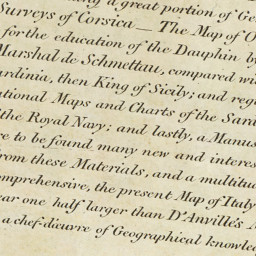 a great portion of Ge
Surveys of Corsica — The Map of O
for the education of the Dauphin by
Marshal de Schmettau, compared wi
ardinia, then King of Sicily; and reg
ational Maps and Charts of the Sard
the Royal Navy; and lastly, a Manus
re to be found many new and interes
rom these Materials, and a multitud
omprehensive, the present Map of Italy
ear one half larger than D'Anville's M
a chef-d'œuvre of Geographical knowled